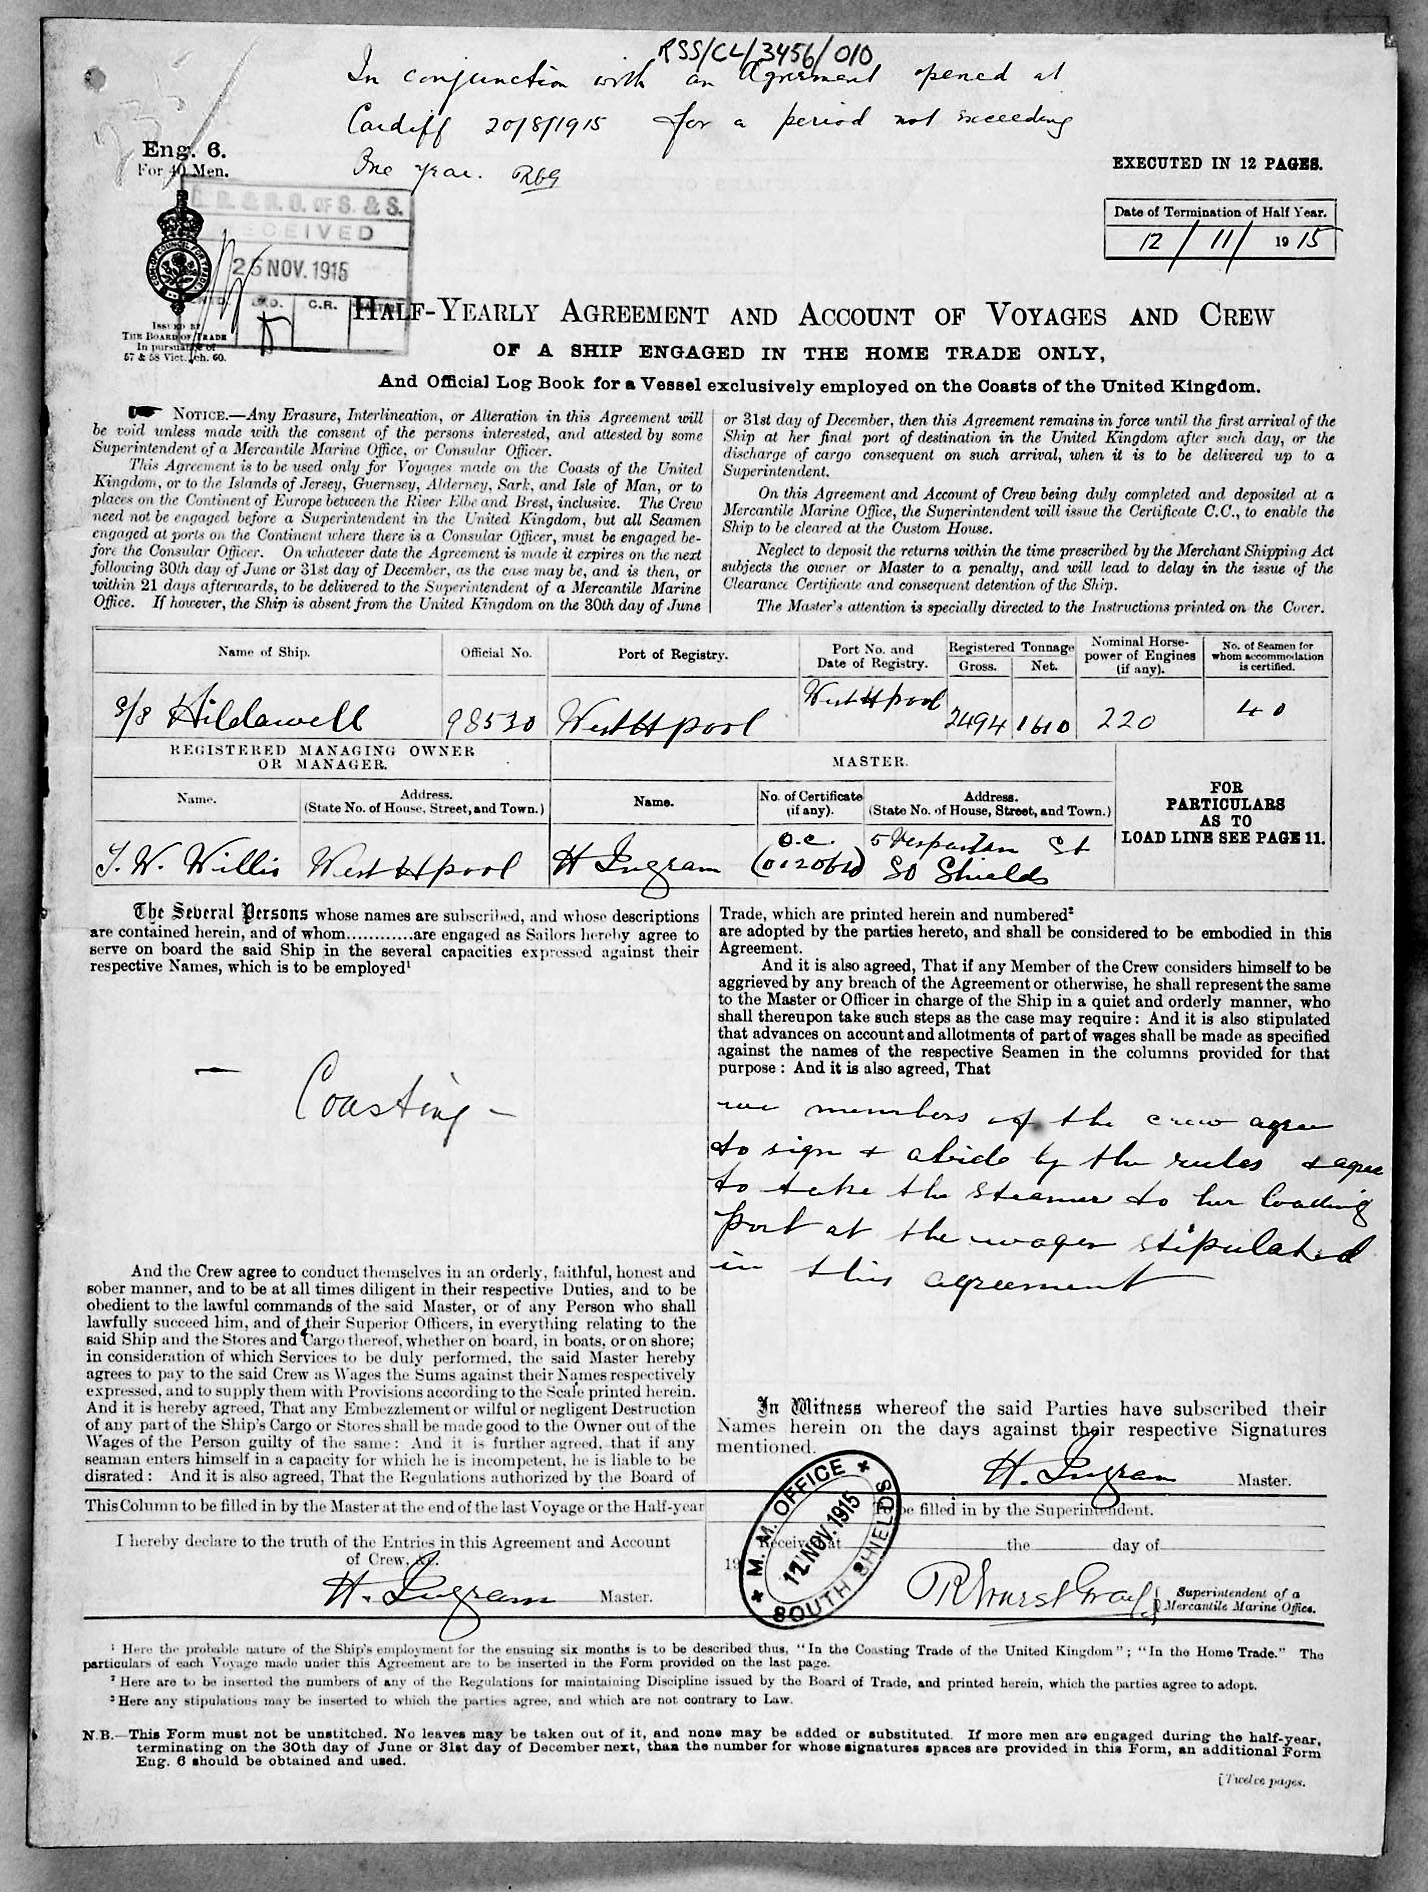 RSS/CL/3456/010
In conjunction with an Agreement opened at
Cardiff 20/8/1915 for a period not exceeding
One year.
Eng. 6.
For 40 Men.
EXECUTED IN 12 PAGES.
Date of Termination of Half Year.
12/11/1915
R. G. OF S. & S.
RECEIVED
25 NOV. 1915
C.R.
ISSUED BY
THE BOARD OF TRADE
In pursuance of
57 & 58 Vict., ch. 60.
HALF-YEARLY AGREEMENT AND ACCOUNT OF VOYAGES AND CREW
OF A SHIP ENGAGED IN THE HOME TRADE ONLY,
And Official Log Book for a Vessel exclusively employed on the Coasts of the United Kingdom.
NOTICE.—Any Erasure, Interlineation, or Alteration in this Agreement will
be void unless made with the consent of the persons interested, and attested by some
Superintendent of a Mercantile Marine Office, or Consular Officer.
This Agreement is to be used only for Voyages made on the Coasts of the United
Kingdom, or to the Islands of Jersey, Guernsey, Alderney, Sark, and Isle of Man, or to
places on the Continent of Europe between the River Elbe and Brest, inclusive. The Crew
need not be engaged before a Superintendent in the United Kingdom, but all Seamen
engaged at ports on the Continent where there is a Consular Officer, must be engaged be-
fore the Consular Officer. On whatever date the Agreement is made it expires on the next
following 30th day of June or 31st day of December, as the case may be, and is then, or
within 21 days afterwards, to be delivered to the Superintendent of a Mercantile Marine
Office. If however, the Ship is absent from the United Kingdom on the 30th day of June
or 31st day of December, then this Agreement remains in force until the first arrival of the
Ship at her final port of destination in the United Kingdom after such day, or the
discharge of cargo consequent on such arrival, when it is to be delivered up to a
Superintendent.
On this Agreement and Account of Crew being duly completed and deposited at a
Mercantile Marine Office, the Superintendent will issue the Certificate C.C., to enable the
Ship to be cleared at the Custom House.
Neglect to deposit the returns within the time prescribed by the Merchant Shipping Act
subjects the owner or Master to a penalty, and will lead to delay in the issue of the
Clearance Certificate and consequent detention of the Ship.
The Master's attention is specially directed to the Instructions printed on the Cover.
Name of Ship. Official No. Port of Registry. Port No. and Date of Registry. Registered Tonnage Gross. Net. Nominal Horse-power of Engines (if any). No. of Seamen for whom accommodation is certified.
S/S Hildawell 98530 West Hpool West Hpool 2494 1610 220 40
REGISTERED MANAGING OWNER OR MANAGER. MASTER.
Name. Address. (State No. of House, Street, and Town.) Name. No. of Certificate (if any). Address. (State No. of House, Street, and Town.)
FOR
PARTICULARS
AS TO
LOAD LINE SEE PAGE 11.
O.C. 5 Vespasian St
J. W. Willis West Hpool H Ingram So Shields
The Several Persons whose names are subscribed, and whose descriptions
are contained herein, and of whom............are engaged as Sailors hereby agree to
serve on board the said Ship in the several capacities expressed against their
respective Names, which is to be employed¹
— Coasting —
And the Crew agree to conduct themselves in an orderly, faithful, honest and
sober manner, and to be at all times diligent in their respective Duties, and to be
obedient to the lawful commands of the said Master, or of any Person who shall
lawfully succeed him, and of their Superior Officers, in everything relating to the
said Ship and the Stores and Cargo thereof, whether on board, in boats, or on shore;
in consideration of which Services to be duly performed, the said Master hereby
agrees to pay to the said Crew as Wages the Sums against their Names respectively
expressed, and to supply them with Provisions according to the Scale printed herein.
And it is hereby agreed, That any Embezzlement or wilful or negligent Destruction
of any part of the Ship's Cargo or Stores shall be made good to the Owner out of the
Wages of the Person guilty of the same: And it is further agreed, that if any
seaman enters himself in a capacity for which he is incompetent, he is liable to be
disrated: And it is also agreed, That the Regulations authorized by the Board of
Trade, which are printed herein and numbered²
are adopted by the parties hereto, and shall be considered to be embodied in this
Agreement.
And it is also agreed, That if any Member of the Crew considers himself to be
aggrieved by any breach of the Agreement or otherwise, he shall represent the same
to the Master or Officer in charge of the Ship in a quiet and orderly manner, who
shall thereupon take such steps as the case may require: And it is also stipulated
that advances on account and allotments of part of wages shall be made as specified
against the names of the respective Seamen in the columns provided for that
purpose: And it is also agreed, That
we members of the crew agree
to sign & abide by the rules & agree
to take the steamer to her loading
port at the wages stipulated
in this agreement
In Witness whereof the said Parties have subscribed their
Names herein on the days against their respective Signatures
mentioned.
H. Ingram Master.
This Column to be filled in by the Master at the end of the last Voyage or the Half-year
I hereby declare to the truth of the Entries in this Agreement and Account
of Crew, &c.
H. Ingram Master.
To be filled in by the Superintendent.
Received at the day of
19
M. M. OFFICE
12 NOV. 1915
SOUTH SHIELDS
Superintendent of a
Mercantile Marine Office.
¹ Here the probable nature of the Ship's employment for the ensuing six months is to be described thus, "In the Coasting Trade of the United Kingdom"; "In the Home Trade." The
particulars of each Voyage made under this Agreement are to be inserted in the Form provided on the last page.
² Here are to be inserted the numbers of any of the Regulations for maintaining Discipline issued by the Board of Trade, and printed herein, which the parties agree to adopt.
³ Here any stipulations may be inserted to which the parties agree, and which are not contrary to Law.
N.B.—This Form must not be unstitched. No leaves may be taken out of it, and none may be added or substituted. If more men are engaged during the half-year,
terminating on the 30th day of June or 31st day of December next, than the number for whose signatures spaces are provided in this Form, an additional Form
Eng. 6 should be obtained and used.
[Twelve pages.